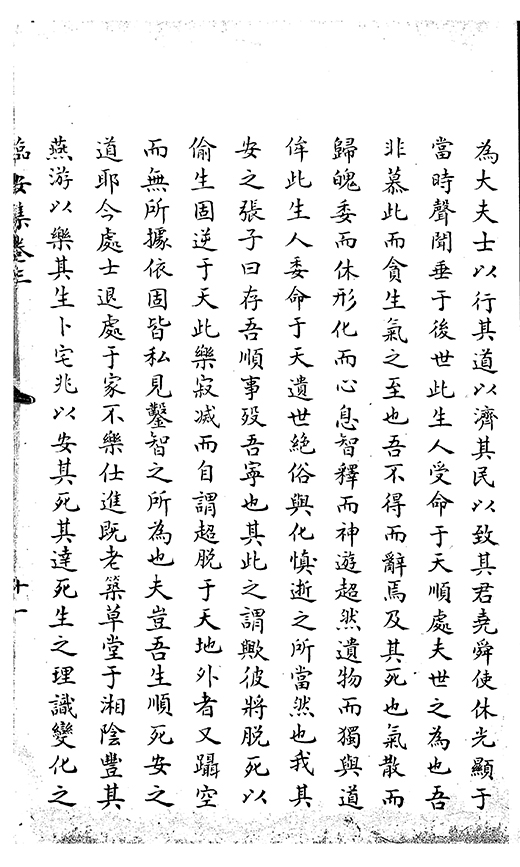 為大夫士以行其道以濟其民以致其君堯舜使休光顯于
當時聲聞垂于後世此生人受命于天順處夫世之為也吾
非慕此而貪生氣之至也吾不得而辭焉及其死也氣散而
歸魄委而休形化而心息智釋而神遊超然遺物而獨與道
侔此生人委命于天遺世絕俗與化慎逝之所當然也我其
安之張子曰存吾順事歿吾寧也其此之謂歟彼將脱死以
偷生固逆于天此樂寂滅而自謂超脱于天地外者又躡空
而無所據依固皆私見鑿智之所為也夫豈吾生順死安之
道耶今處士退處于家不樂仕進既老築草堂于湘陰豐其
燕游以樂其生卜宅兆以安其死其達死生之理識變化之
臨安集卷
十一